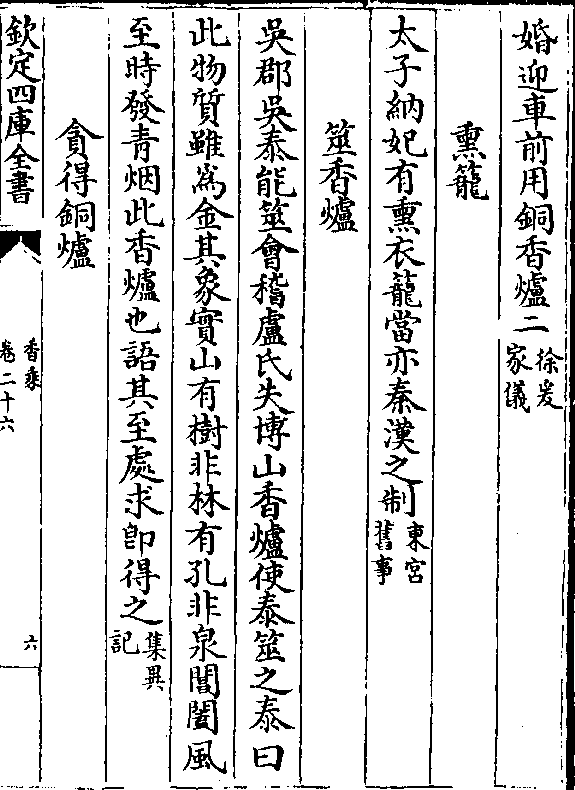 婚迎車前用銅香爐二徐爰家儀
熏籠
太子納妃有熏衣籠當亦秦漢之制東宮舊事
筮香爐
吳郡吳泰能筮會稽盧氏失博山香爐使泰筮之泰曰
此物質雖為金其象實山有樹非林有孔非泉閶闔風
至時發青烟此香爐也語其至處求即得之集異記
貪得銅爐
欽定四庫全書
香乘
卷二十六
六